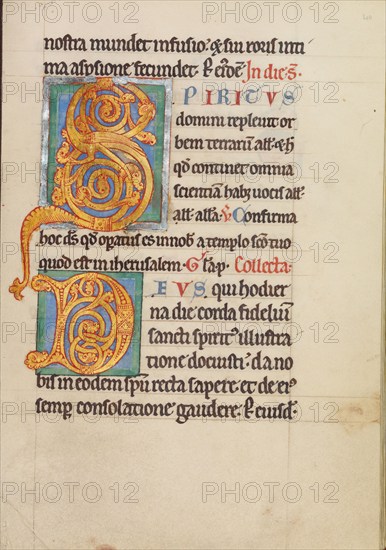 nostra mundet infusio. & sui roris inti
ma aspsione fecundet. In die S.
SPIRITUS
domini repleuit or
bem terrarum all'a. & h
qd continet omnia
scientiam hab& uocis all'a.
all'a. all'a. V Confirma
hoc ds qd opatus es in nob a templo sco tuo
quod est in iherusalem. Collecta.
DEUS qui hodier
na die corda fidelium
sancti spiritus illustra
tione docuisti. da no
bis in eodem spu recta sapere. et de ei
semp consolatione gaudere. P eiusd.
PHOTO 12